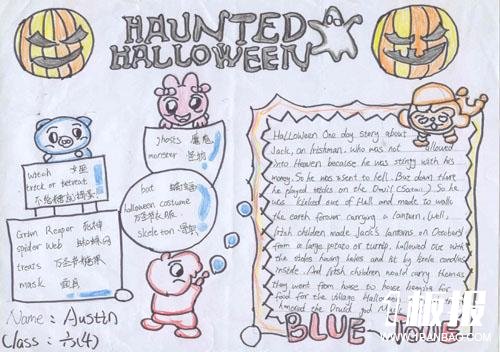 HAUNTED
HALLOWEEN
witch 女巫
trick or retreat
不给糖就捣蛋
Grim Reaper 死神
spider Web 蜘蛛网
treats 万圣节糖果
mask 面具
ghosts 魔鬼
monster 怪物
bat 蝙蝠
halloween costume
万圣节衣服
skeleton 骨架
Halloween One day story about
Jack, an Irishman, who was not allowed
into Heaven because he was stingy with his
money. So he was sent to hell. But down there
he played tricks on the Devil (Satan). So he
was kicked out of Hell and made to walk
the earth forever carrying a lantern. Well,
Irish children made Jack's lanterns on October31
from a large potato or turnip, hollowed out with
the sides having holes and lit by little candles
inside. And Irish children would carry them as
they went from house to house begging for
food for the village Hallo
honored the Druid god Muck
BLUE
Name: Austin
Class: 六(4)
板报
WWW.TRANBAO.COM